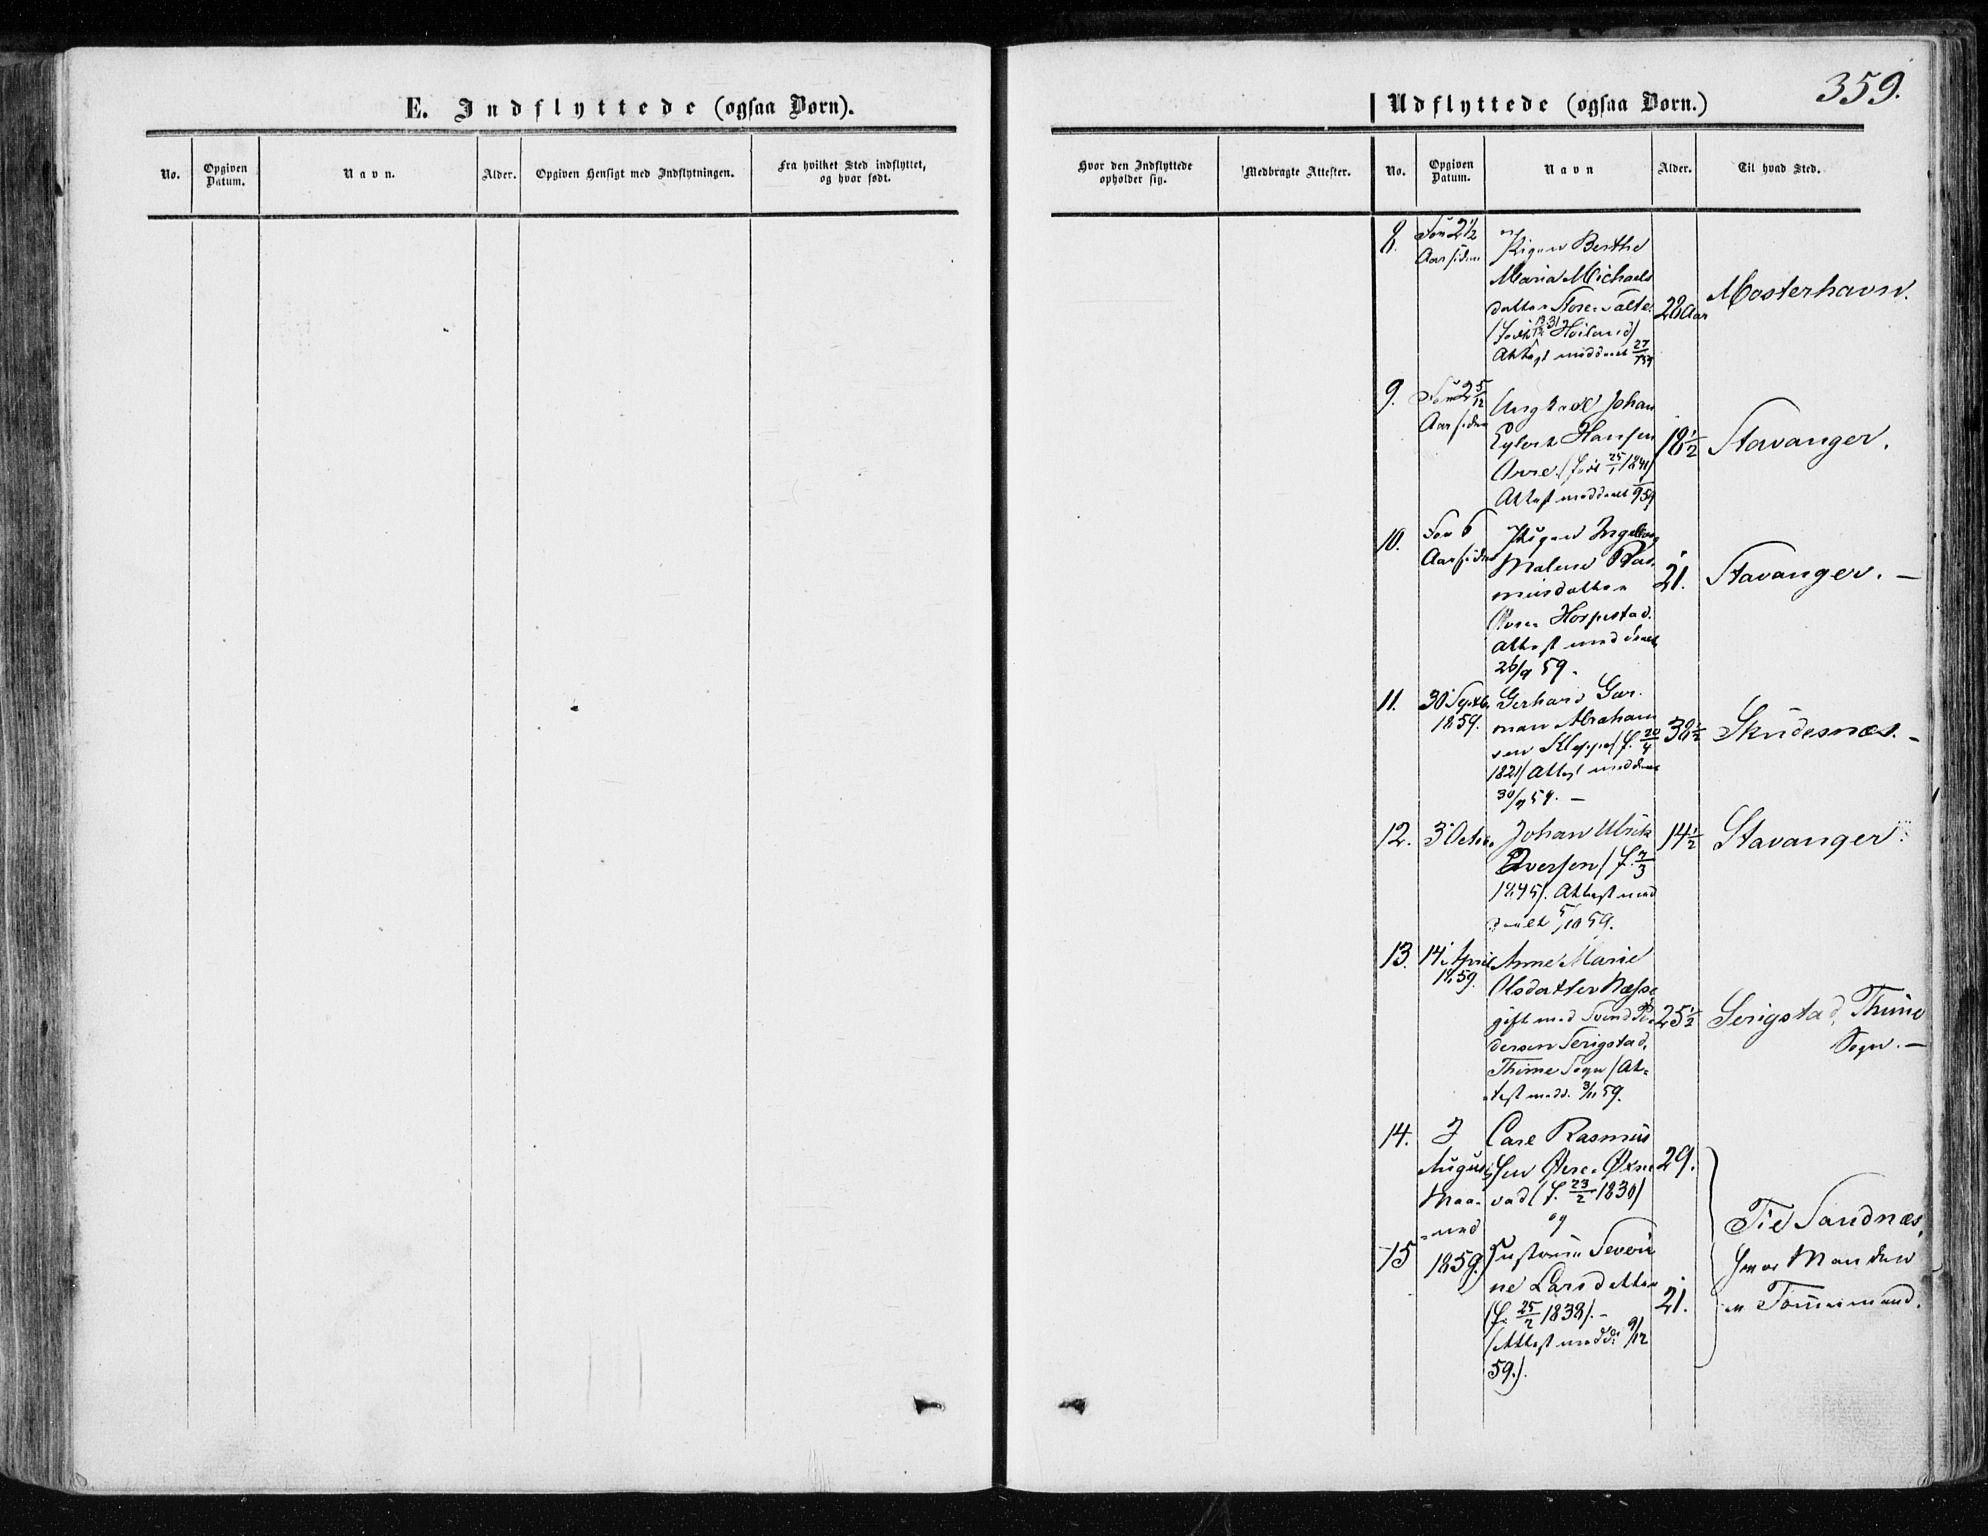 359.
E. Indflyttede (ogsaa Børn).
Udflyttede (ogsaa Børn.)
No.
Opgiven Datum.
Navn.
Alder.
Opgiven Hensigt med Indflytningen.
Fra hvilket Sted indflyttet, og hvor født.
Hvor den Indflyttede opholder sig.
Medbragte Attester.
No.
Opgiven Datum.
Navn
Alder.
Til hvad Sted.
8.
For 2½
Aar siden
Pigen Berthe
Maria Michaels
datter
Høiland)
Attest meddeelt 27/
28 Aar
Mosterhavn.
9.
For 2 5/12
Aar siden
Ungkarl Johan
Eylert Hansen
(født 25/1 1841)
Attest meddeelt
18½
Stavanger.
10.
For 6
Aar siden
Pigen Ingeborg
Malene Ras
musdatter
Horpestad.
Attest meddeelt
26/9 59.
21.
Stavanger. —
11.
30 Septb.
1859.
Gerhard Gar
man Abraham
sen Kleppe (f. 20/4
1821) Attest meddeelt
30/9 59. —
38½
Skudesnæs. —
12.
3 Octbr.
Johan Ulrik
Iversen (f. 7/3
1845). Attest med
deelt 5/10 59.
14½
Stavanger.
13.
14 April
1859.
Anne Marie
Olsdatter Næsse
gift med Svend Pe
dersen Serigstad,
Thime Sogn (At=
test medd. 3/11 59.
25½
Serigstad, Thime
Sogn. —
14.
I
August
Maa=
ned
1859.
Carl Rasmus
sen Øxne
vad (f. 23/2 1830)
og
29.
15
Hustruen Severi
ne Larsdatter
(f. 25/2 1838). —
(Attest medd. 9/12
59.).
21.
Til Sandnæs,
hvor Manden
er